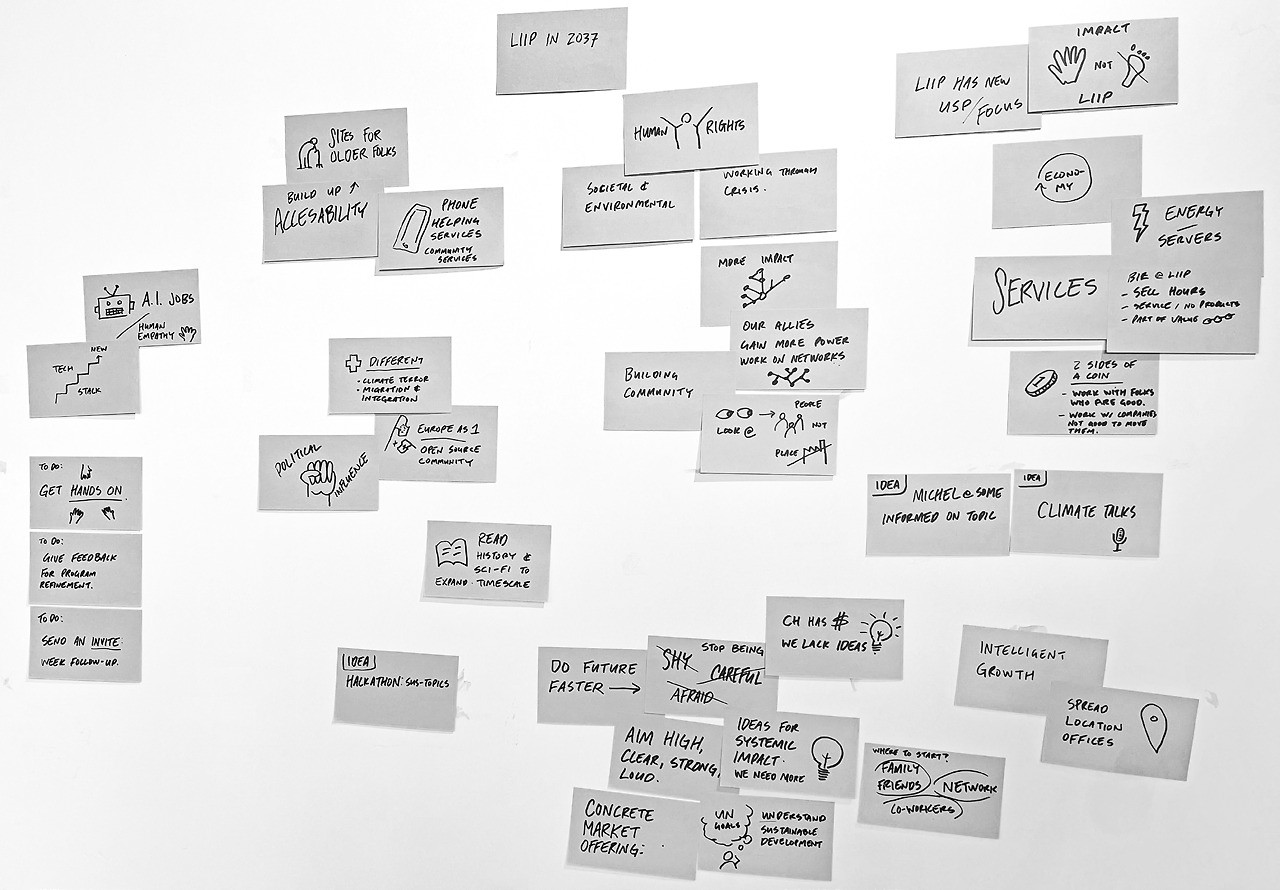 LIIP IN 2037
IMPACT
NOT
LIIP
LIIP HAS NEW
USP/FOCUS
HUMAN RIGHTS
SOCIETAL &
ENVIRONMENTAL
WORKING THROUGH
CRISIS.
SITES FOR
OLDER FOLKS
BUILD UP ↑
ACCESABILITY
PHONE
HELPING
SERVICES
COMMUNITY
SERVICES
ECONO-
MY
ENERGY
SERVERS
SERVICES
BIZ @ LIIP
- SELL HOURS
- SERVICE / NO PRODUCTS
- PART OF VALUE
MORE IMPACT
OUR ALLIES
GAIN MORE POWER
WORK ON NETWORKS
BUILDING
COMMUNITY
LOOK @ → PEOPLE
NOT
PLACE
2 SIDES OF
A COIN
- WORK WITH FOLKS
WHO ARE GOOD.
- WORK W/ COMPANIES
NOT GOOD TO MOVE
THEM.
A.I. JOBS
HUMAN
EMPATHY
NEW
TECH
STALK
DIFFERENT
• CLIMATE TERROR
• MIGRATION &
INTEGRATION
EUROPE AS 1
OPEN SOURCE
COMMUNITY
POLITICAL
INFLUENCE
TO DO:
GET HANDS ON.
TO DO:
GIVE FEEDBACK
FOR PROGRAM
REFINEMENT.
TO DO:
SEND AN INVITE
WEEK FOLLOW-UP.
READ
HISTORY &
SCI-FI TO
EXPAND TIMESCALE
IDEA
MICHEL @ SOME
INFORMED ON TOPIC
IDEA
CLIMATE TALKS
IDEA
HACKATHON: SUS-TOPICS
DO FUTURE
FASTER →
STOP BEING
SHY
CAREFUL
AFRAID
CH HAS $
WE LACK IDEAS
AIM HIGH,
CLEAR, STRONG,
LOUD.
IDEAS FOR
SYSTEMIC
IMPACT.
WE NEED MORE
CONCRETE
MARKET
OFFERING:
UN
GOALS
UNDERSTAND
SUSTAINABLE
DEVELOPMENT
WHERE TO START?
FAMILY
FRIENDS
NETWORK
CO-WORKERS
INTELLIGENT
GROWTH
SPREAD
LOCATION
OFFICES